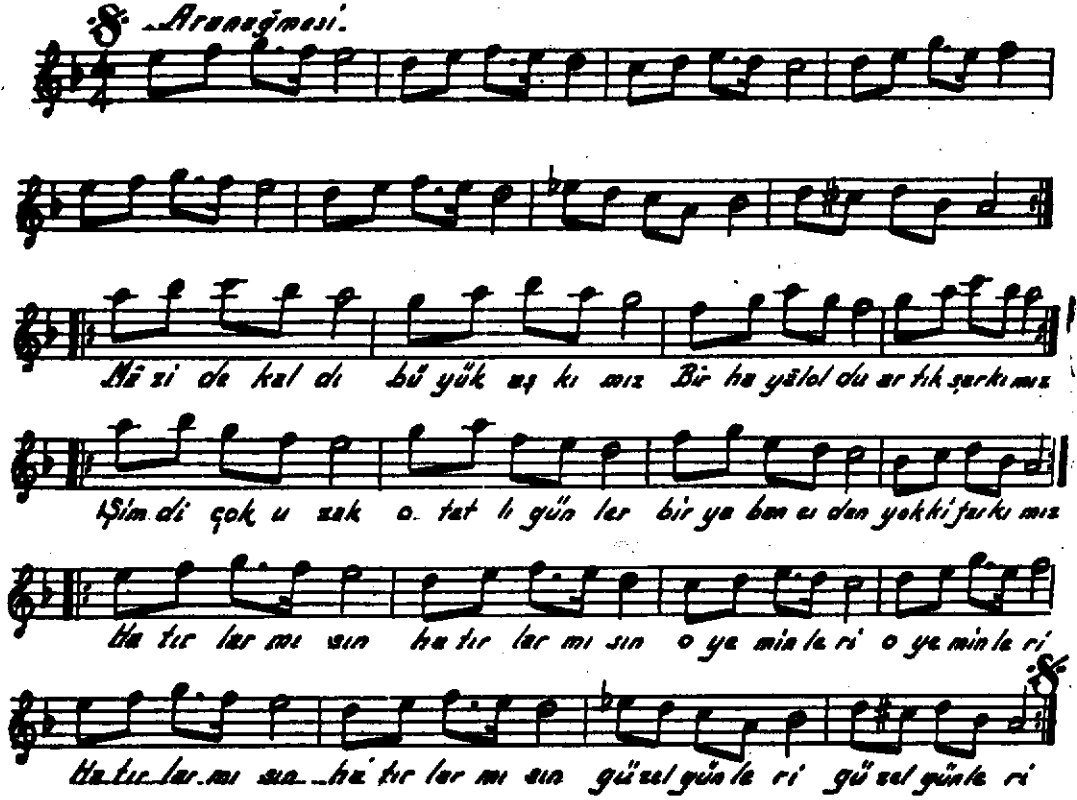 Aranağmesi
Mâ zi de kal dı bü yük aş kı mız Bir ha yâlol du ar tık şarkı mız
Şim di çok u zak o tat lı gün ler bir ya ban cı dan yokki farkı mız
Ha tır lar mı sın ha tır lar mı sın o ye min le ri o ye min le ri
Ha tır lar mı sın ha tır lar mı sın güzel gün le ri gü zel günle ri